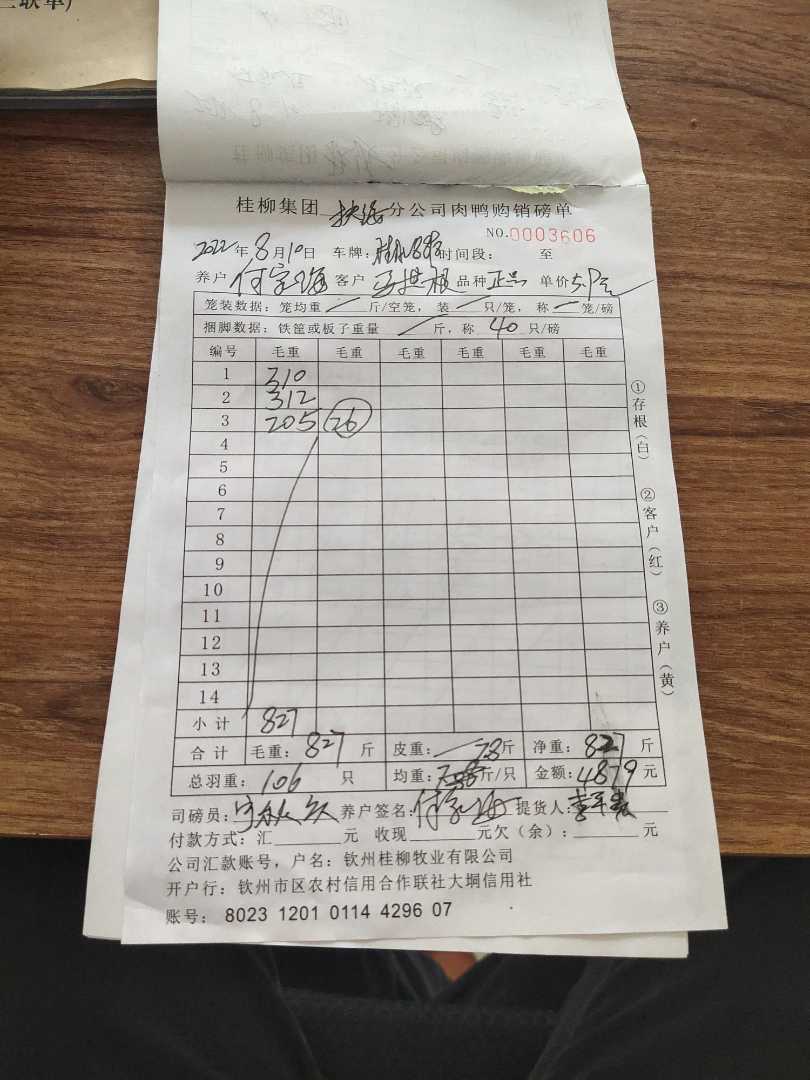 三联单)
桂柳集团 扶海 分公司肉鸭购销磅单
NO.0003606
2022年8月10日 车牌: 时间段: 至
养户 何宗海 客户 品种 正品 单价 5.9元
笼装数据: 笼均重 / 斤/空笼, 装 / 只/笼, 称 / 笼/磅
捆脚数据: 铁筐或板子重量 / 斤, 称 40 只/磅
编号 毛重 毛重 毛重 毛重 毛重 毛重
1 310
2 312
3 205 26
4
5
6
7
8
9
10
11
12
13
14
小计 827
合计 毛重: 827 斤 皮重: 斤 净重: 827 斤
总羽重: 106 只 均重: 斤/只 金额: 4879 元
司磅员: 养户签名: 何宗海 提货人:
付款方式: 汇 元 收现 元欠(余): 元
公司汇款账号, 户名: 钦州桂柳牧业有限公司
开户行: 钦州市区农村信用合作联社大垌信用社
账号: 8023 1201 0114 4296 07
①存根(白)
②客户(红)
③养户(黄)